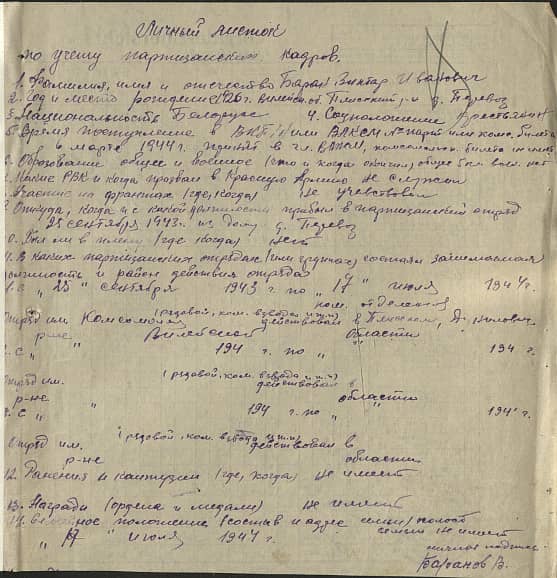 Личный листок
по учету партизанских кадров.
1. Фамилия, имя и отчество Баран Виктар Иванович
2. Год и место рождения 1926 г. Вилейск. об. д. Перевоз
3. Национальность Белорус 4. Соцположение Крестьянин
5. Время поступления в ВКП(б) или ВЛКСМ № парт или комс. билета
6 марта 1944 г. принят в чл. ВЛКСМ, комсомольск. билета не имеет
Образование общее и военное (что и когда окончил) общее 5 кл. воен. нет
Каким РВК и когда призван в Красную Армию Не служил
Участие на фронтах (где, когда) Не участвовал
Откуда, когда и с какой должности прибыл в партизанский отряд
25 сентября 1943 г. из дому д. Перевоз
0. Был ли в плену (где когда) нет
В каких партизанских отрядах (или группах) состоял занимаемая
должность и район действия отряда
1. С " 25 " сентября 1943 г. по " 17 " июля 1944 г.
ком. отделения
Отряд им. Комсомола (рядовой, ком. взвода и т.п.) действовал в
р-не Вилейской области
2. С " " 194 г. по " " 194 г.
Отряд им. (рядовой, ком. взвода и т.п.) действовал в
р-не области
3. С " " 194 г. по " " 194 г.
Отряд им. (рядовой, ком. взвода и т.п.) действовал в
р-не области
12. Ранения и кантузии (где, когда) Не имеет
13. Награды (ордена и медали) Не имеет
14. Семейное положение (состав и адрес семьи) холост
семьи не имеет
" 17 " июля 1944 г. личная подпись
Баранов В.